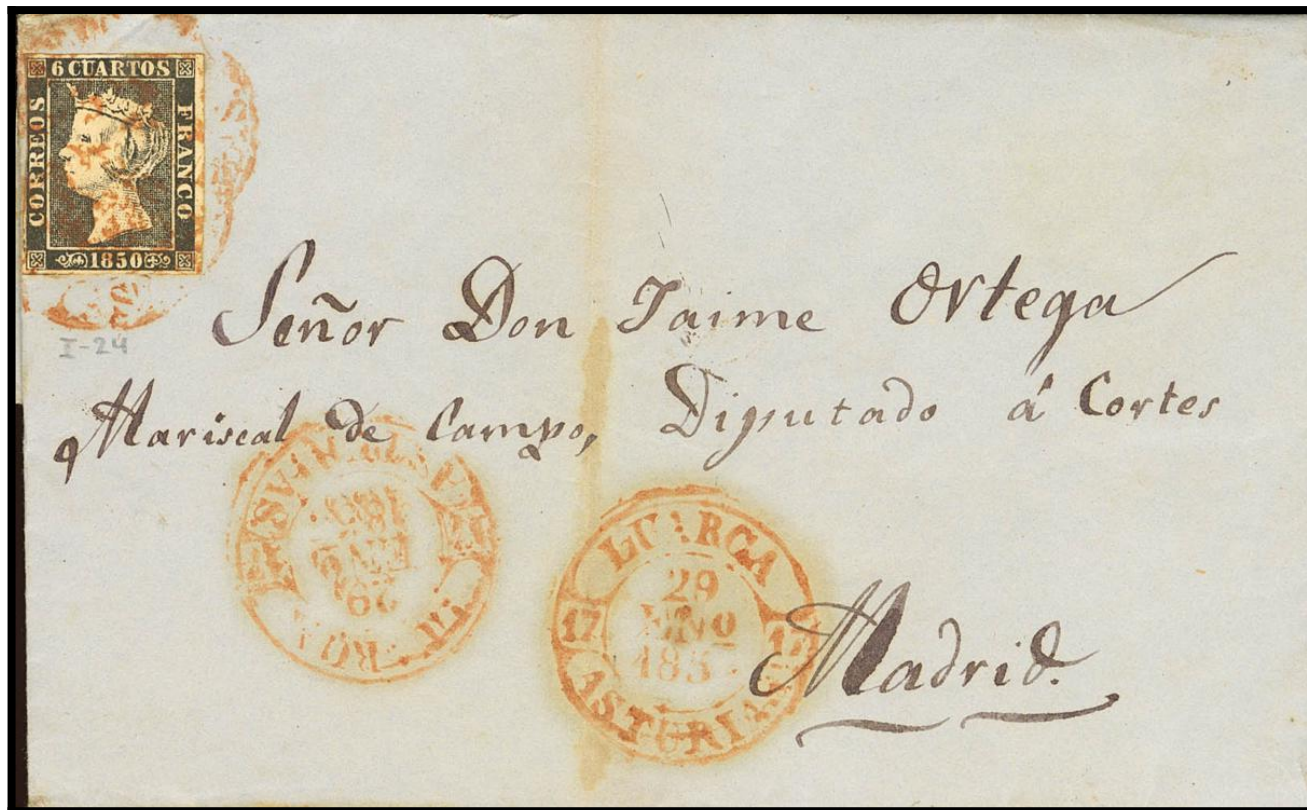 6 CUARTOS
CORREOS
FRANCO
1850
I-24
Señor Don Jaime Ortega
Mariscal de Campo, Diputado á Cortes
LUARCA
29
ENO
17
ASTURIAS
Madrid.